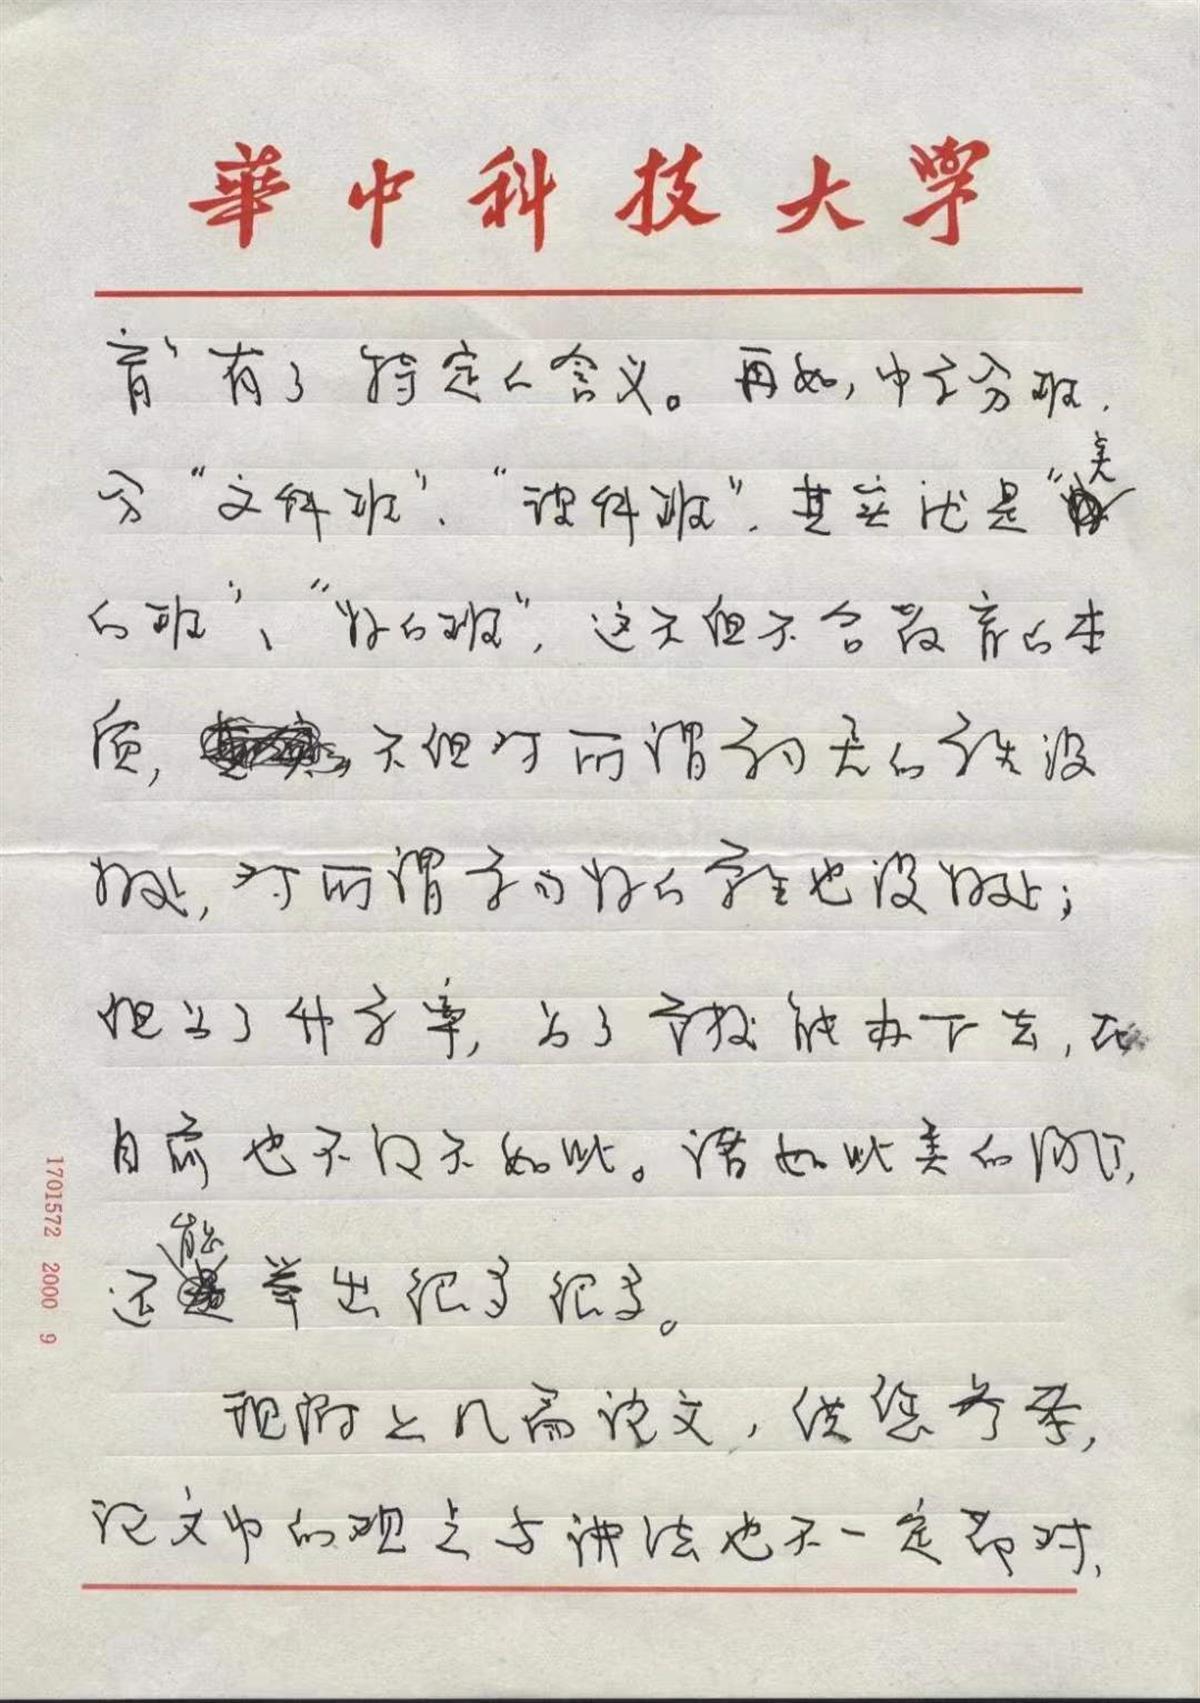 華中科技大学
育”有了特定的含义。再如，中学分班，
分“文科班”、“理科班”，其实就是“差
的班”、“好的班”，这不但不合教育的本
质，不但对所谓学习差的学生没
好处，对所谓学习好的学生也没好处；
但为了升学率，为了学校能办下去，在
目前也不得不如此。诸如此类的问题，
还能举出很多很多。
现附上几篇论文，供您参考，
论文中的观点与讲法也不一定都对，
1701572 2000 9